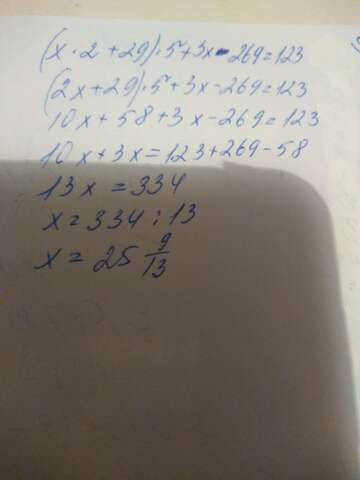 (x·2+29)·5+3x-269=123
(2x+29)·5+3x-269=123
10x+58+3x-269=123
10x+3x=123+269-58
13x=334
x=334:13
x=25 9/13